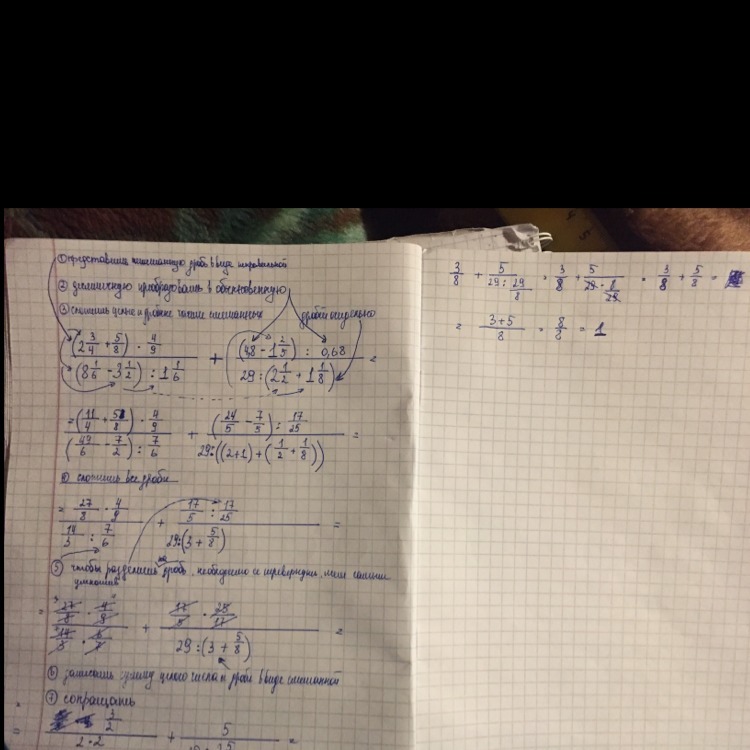 ① представить смешанную дробь в виде неправильной
② десятичную преобразовать в обыкновенную
③ сложить целые и дробные части смешанных дробей отдельно
(2 3/4 + 5/8) · 4/9 / (8 1/6 - 3 1/2) : 1 1/6 + (4,8 - 1 2/5) : 0,68 / 29 : (2 1/2 + 1 1/8) =
= (11/4 + 5/8) · 4/9 / (49/6 - 7/2) : 7/6 + (24/5 - 7/5) : 17/25 / 29 : ((2+1) + (1/2 + 1/8)) =
④ сложить все дроби
= 27/8 · 4/9 / 14/3 : 7/6 + 17/5 : 17/25 / 29 : (3 + 5/8) =
⑤ чтобы разделить на дробь, необходимо её перевернуть, тем самым умножить
= 27/8 · 4/9 / 14/3 · 6/7 + 17/5 · 25/17 / 29 : (3 + 5/8) =
⑥ записать сумму целого числа и дроби в виде смешанной
⑦ сокращать
3/2 / 2·2 + 5
3/8 + 5 / 29 : 29/8 = 3/8 + 5 / 29 · 8/29 = 3/8 + 5/8 =
= 3+5 / 8 = 8/8 = 1